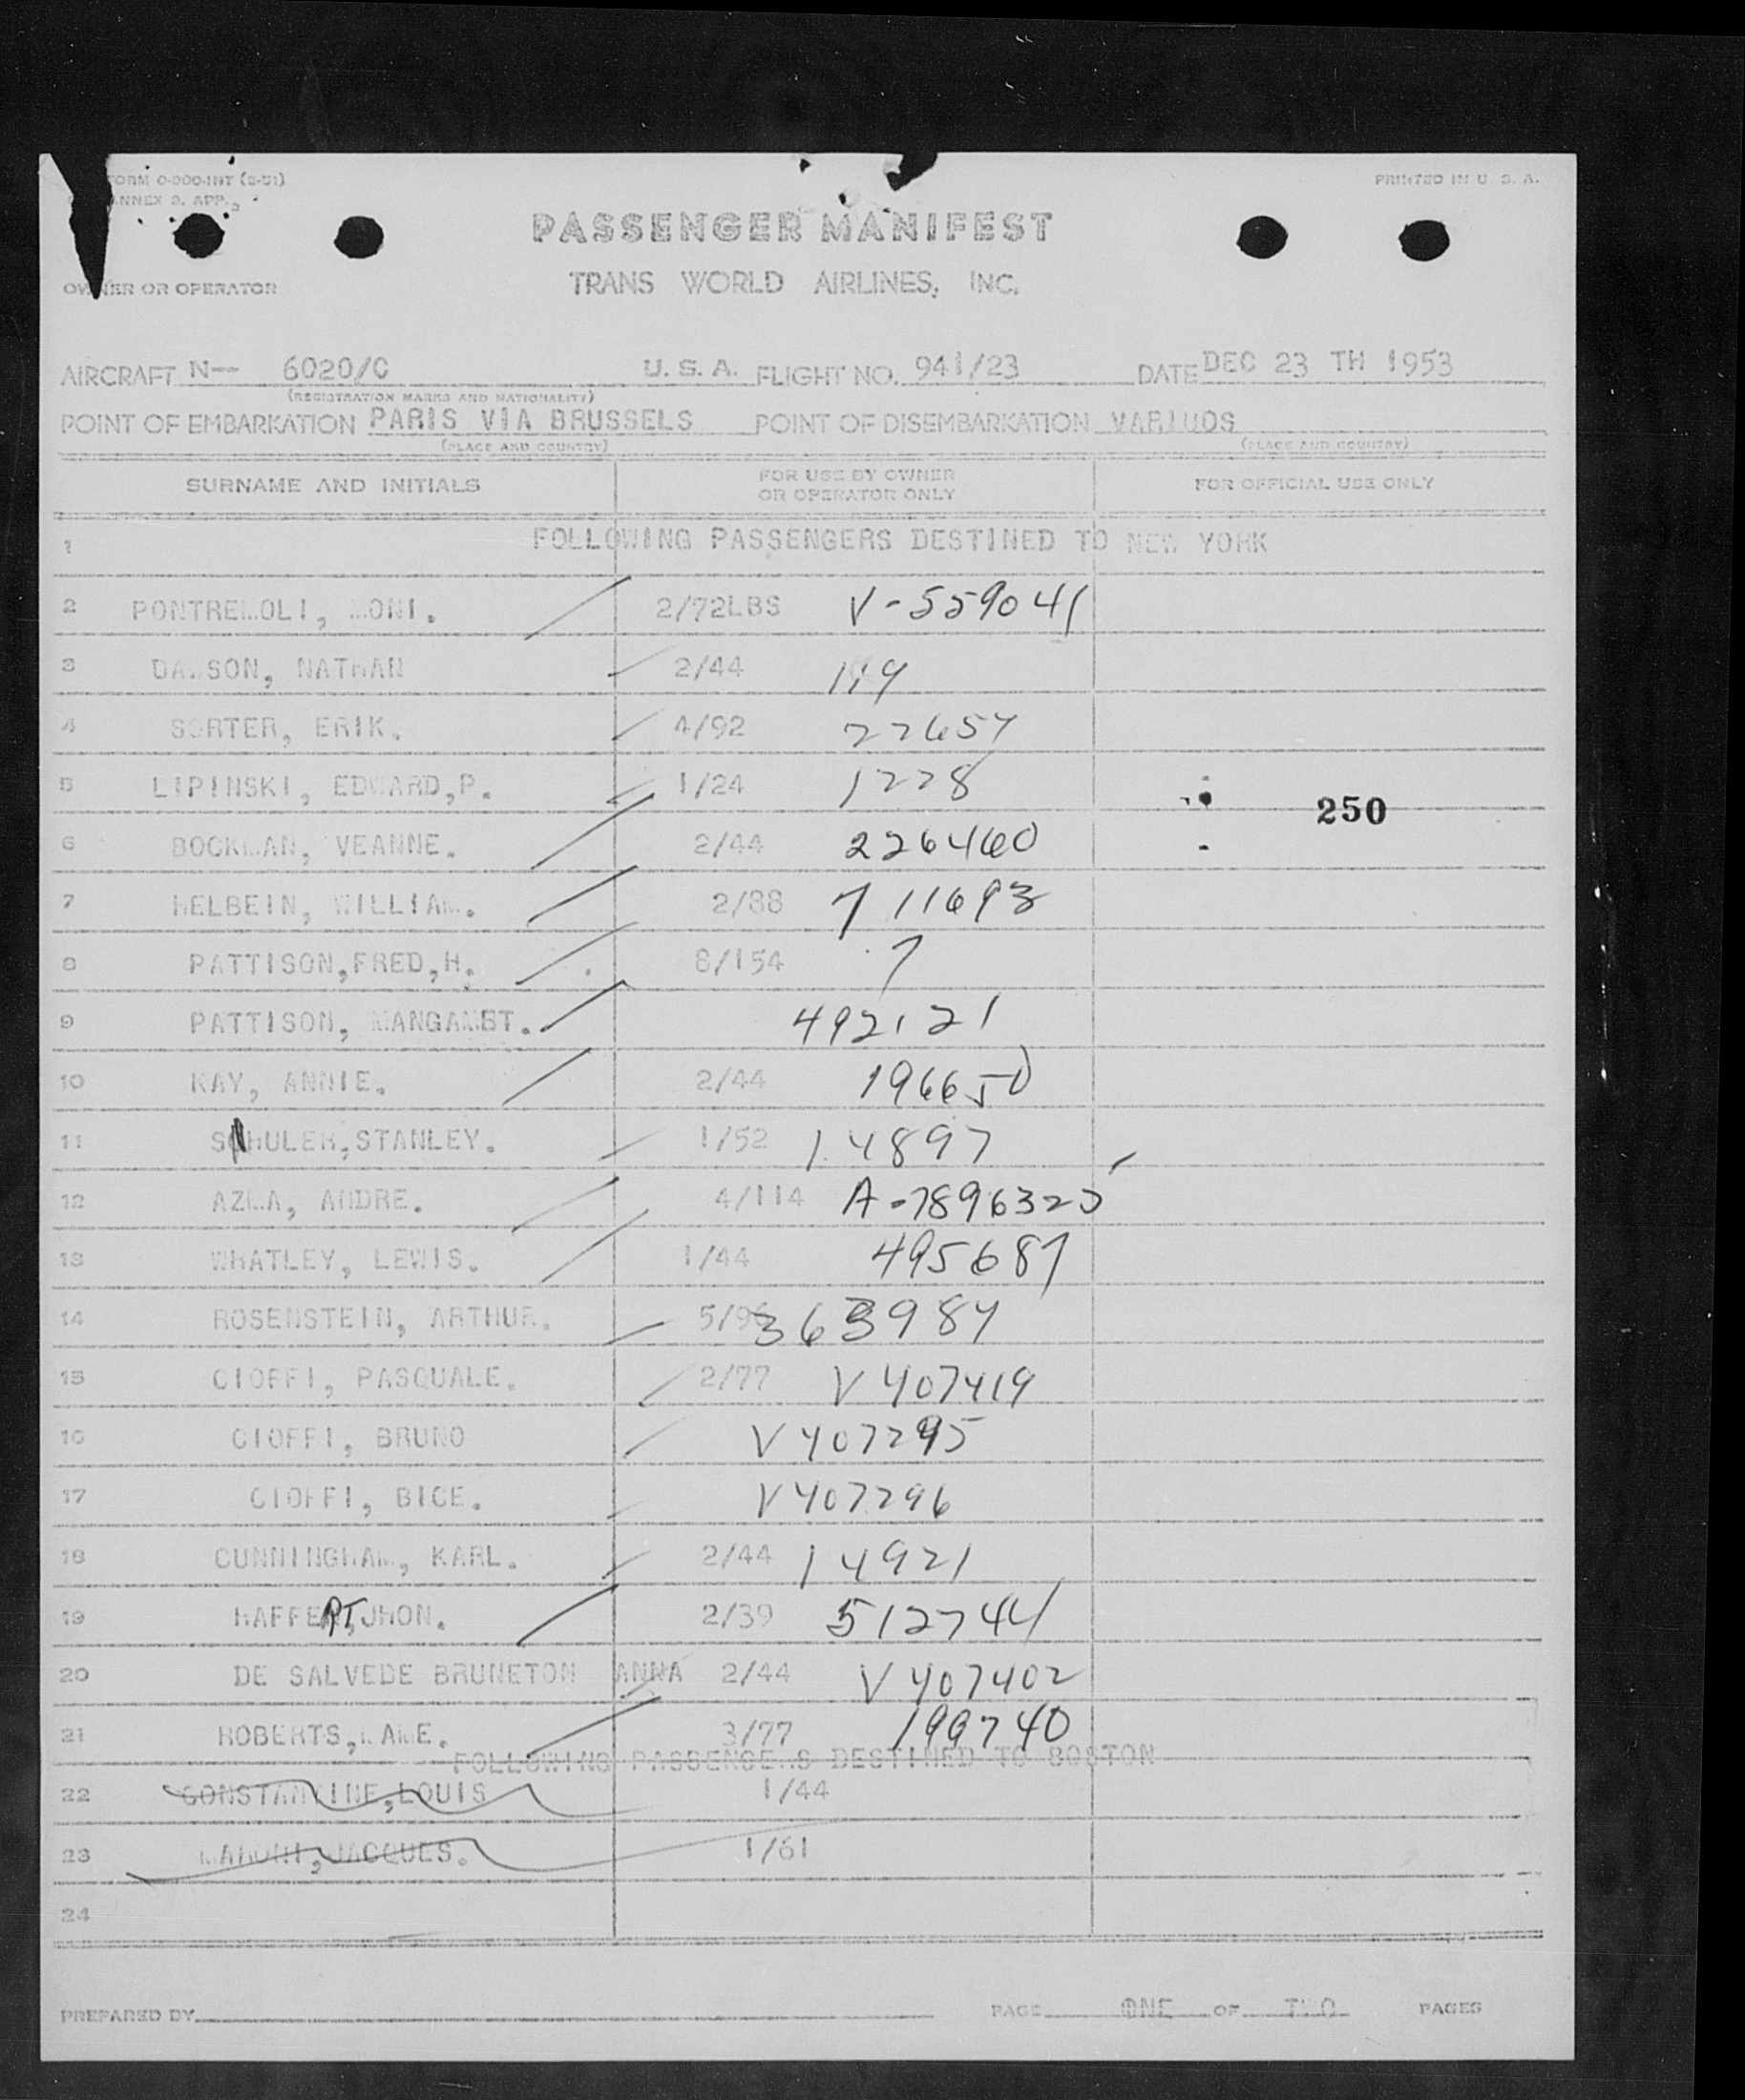 FORM O-300-INT (5-51)
ANNEX 9. APP.
PRINTED IN U. S. A.
PASSENGER MANIFEST
OWNER OR OPERATOR
TRANS WORLD AIRLINES, INC.
AIRCRAFT N-- 6020/C U. S. A. FLIGHT NO. 941/23 DATE DEC 23 TH 1953
(REGISTRATION MARKS AND NATIONALITY)
POINT OF EMBARKATION PARIS VIA BRUSSELS POINT OF DISEMBARKATION VARIUOS
(PLACE AND COUNTRY) (PLACE AND COUNTRY)
SURNAME AND INITIALS FOR USE BY OWNER OR OPERATOR ONLY FOR OFFICIAL USE ONLY
1 FOLLOWING PASSENGERS DESTINED TO NEW YORK
2 PONTREMOLI, MONI. 2/72LBS V-559041
3 DAWSON, NATHAN 2/44
4 SORTER, ERIK. 4/92 22657
5 LIPINSKI, EDWARD,P. 1/24 1228
250
6 BOCKMAN, VEANNE. 2/44 226460
7 HELBEIN, WILLIAM. 2/88 711693
8 PATTISON,FRED,H. 8/154
9 PATTISON, 492121
10 KAY, ANNIE. 2/44 196650
11 SCHULER,STANLEY. 1/52 14897
12 AZMA, ANDRE. 4/114 A-7896325
13 WHATLEY, LEWIS. 1/44 495687
14 ROSENSTEIN, ARTHUR. 5/96 363984
15 CIOFFI, PASQUALE. 2/77 V407419
16 CIOFFI, BRUNO V407295
17 CIOFFI, BICE. V407296
18 CUNNINGHAM, KARL. 2/44 14921
19 HAFFERT,JHON. 2/39 512744
20 DE SALVEDE BRUNETON ANNA 2/44 V407402
21 ROBERTS,MAME. 3/77 199740
FOLLOWING PASSENGERS DESTINED TO BOSTON
22 CONSTANTINE,LOUIS 1/44
23 JACQUES. 1/61
24
PREPARED BY PAGE ONE OF TWO PAGES